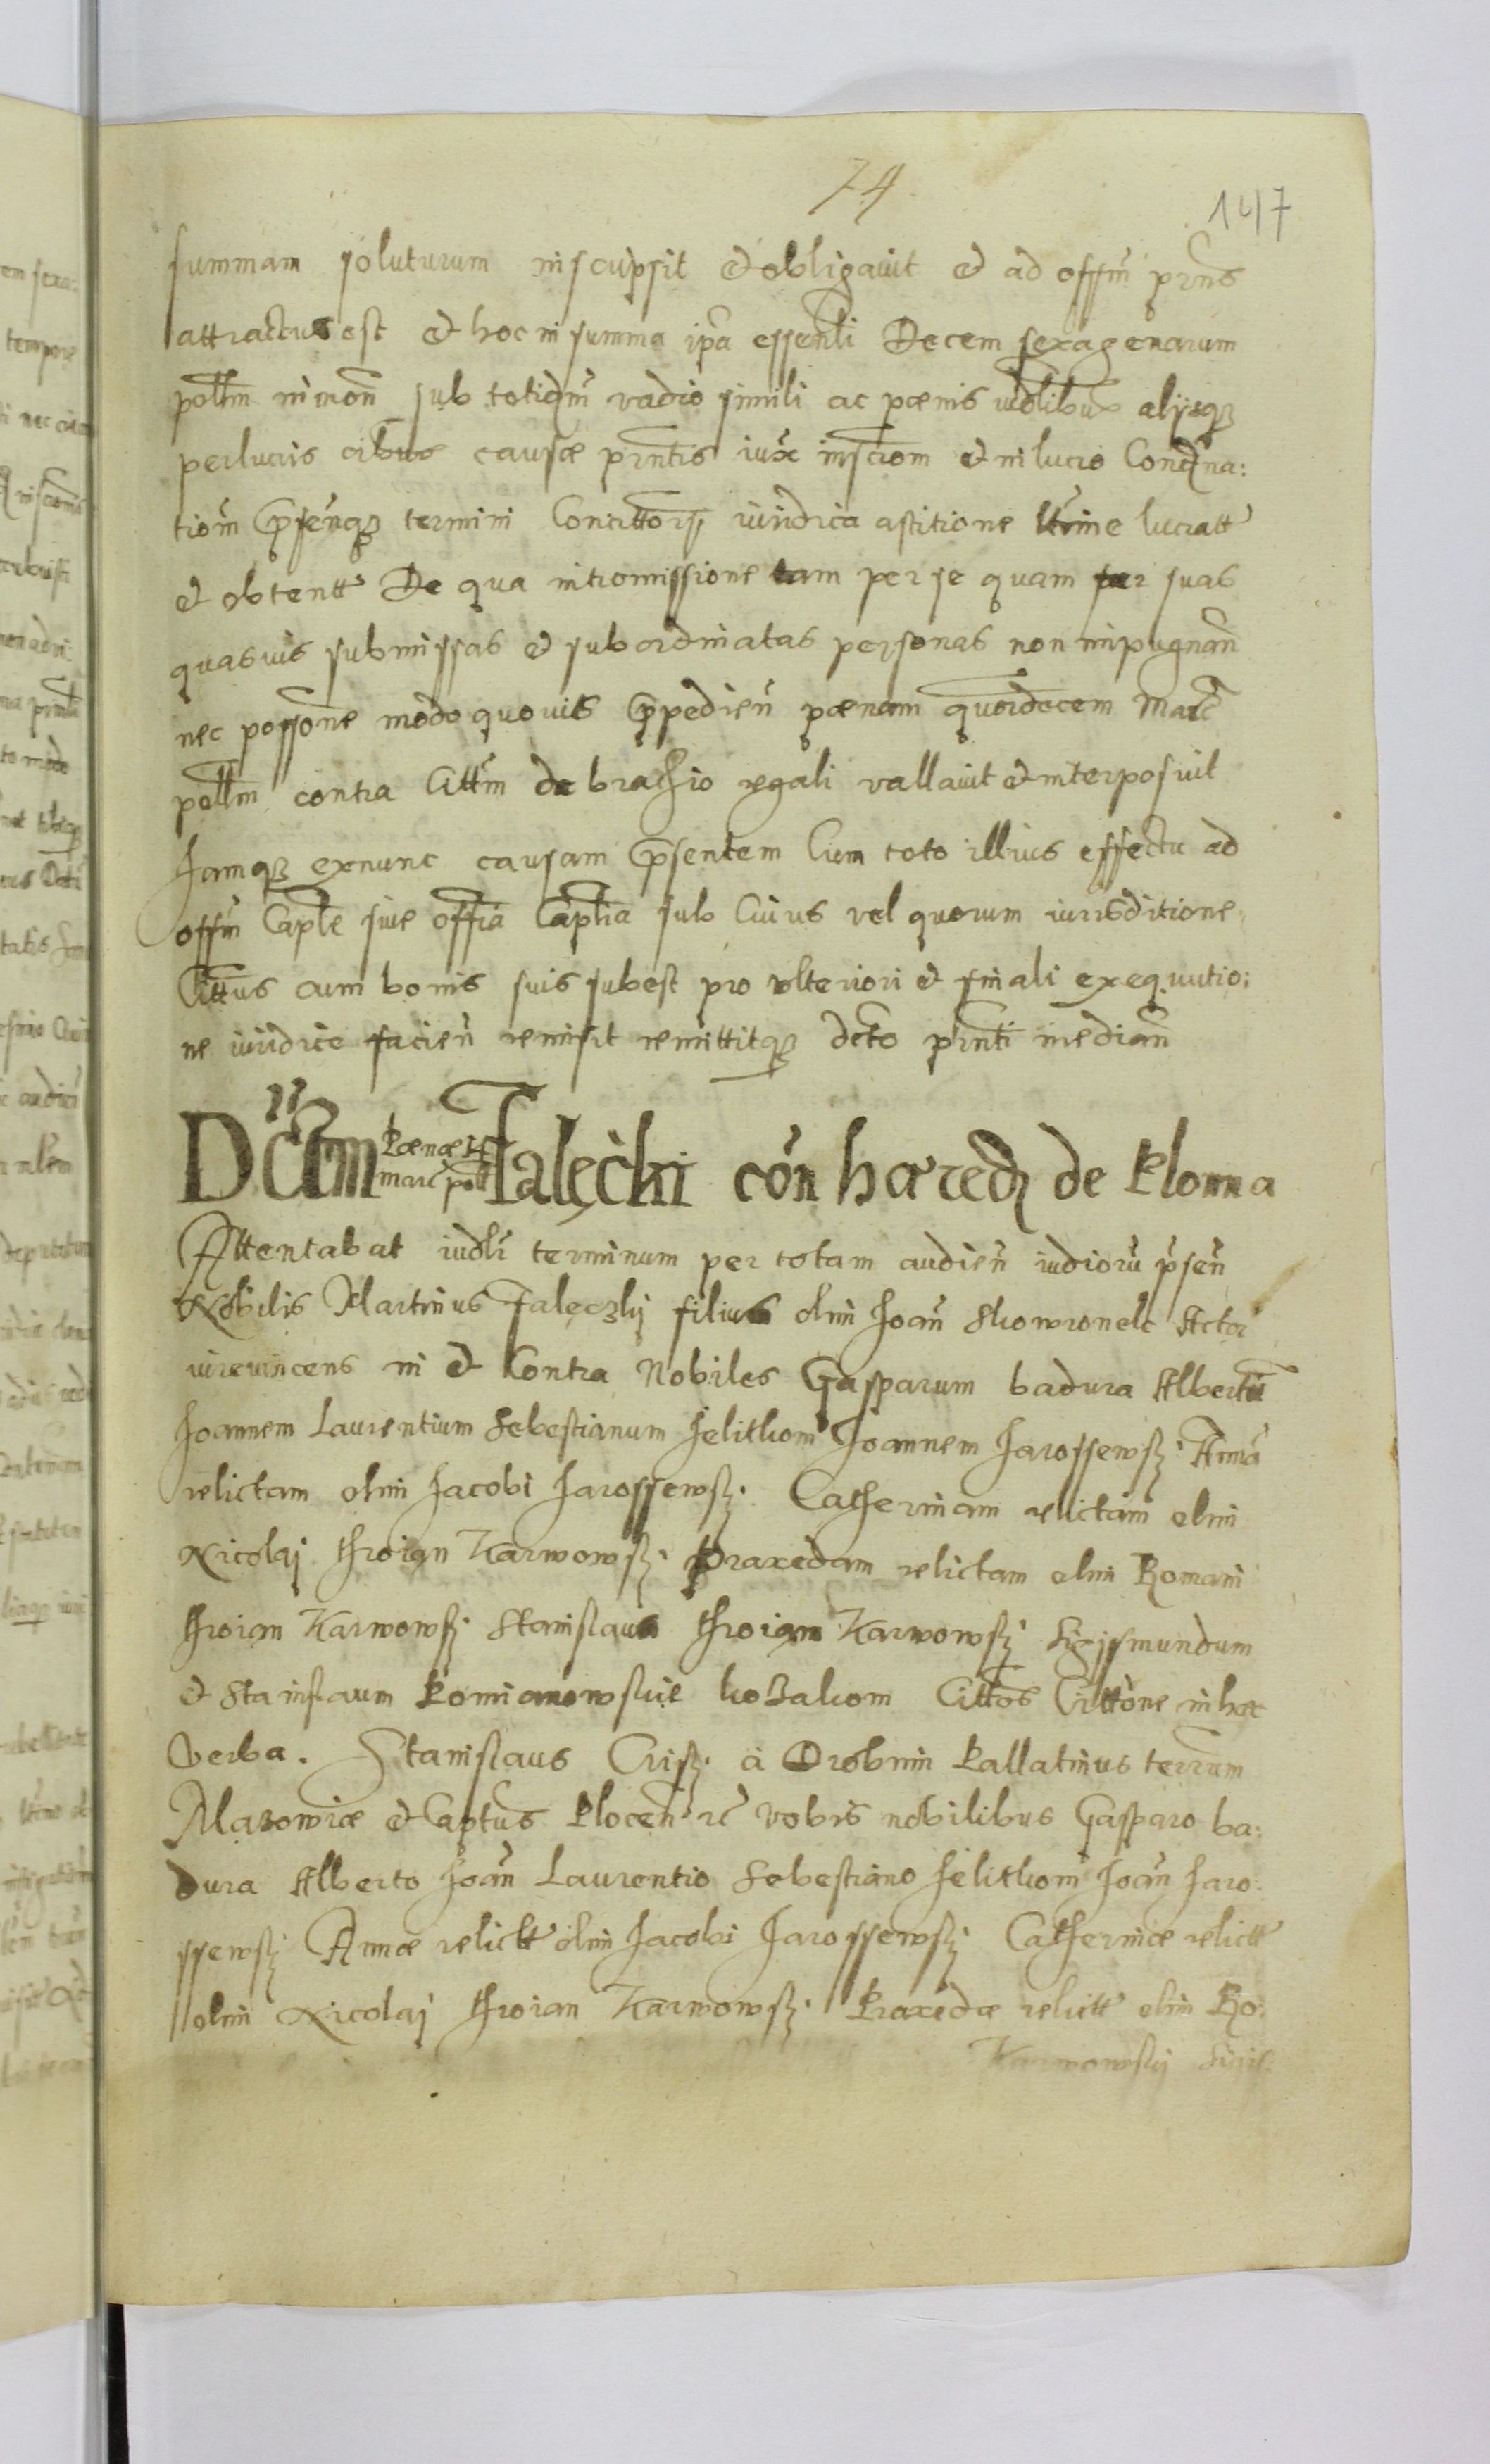 74
147
summam soluturum inscripsit et obligavit et ad offm prns
attractus est et hoc in summa ipa essenli Decem sexagenarum
pollm in mon sub totidm vadio simili ac pœnis iudlibus alijsq
perlucris oibus causæ prntis iux inscriom et in lucro Condna:
tiom Gpsenq termini Concittoris iuridica astitione ltime lucratt
et obtentt De qua intromissione tam per se quam per suas
quasvis submissas et subordinatas personas non impugnan
nec possone modo quovis Gppedien pœnam quordecem Marc
pollm contra Cittm de brachio regali vallavit et interposuit
Jamq exnunc causam Gpsentem Cum toto illius effectu ad
offm Caple sive offia Caplia sub Cuius vel quorum iurisditione
Cittus cum bonis suis subest pro ulteriori et finali exequutio:
ne iuridice facien remisit remittitq dcto prnti median
Dctm Pœnæ 14 Falęcki con hæred de Plonna
marc poll
Attentabat iudlr terminum per totam audien iudiorū psen
Nobilis Martinus Falęczkj filius olim Joan Skowronek Actor
iurevincens in et Contra Nobiles Gasparum badura Albertū
Joannem Laurentium Sebestianum Jelitkom Joannem Jarossewsj Annā
relictam olim Jacobi Jarossewsj Catherinam relictam olim
Nicolaj throian Karwowsj Praxedam relictam olim Romani
throian Karwowsj Stanislaum throian Karwowsj Sigismundum
et Stanislaum Pomianowskie kozakom Cittos Cittone in hæc
Verba. Stanislaus Crisj à Drobnin Pallatinus terrum
Mazowiæ et Captus Plocen rc vobis nobilibus Gasparo ba:
dura Alberto Joan Laurentio Sebestiano Jelitkom Joan Jaro:
ssewsj Annæ relictt olim Jacobi Jarossewsj Catherinæ relictt
olim Nicolaj throian Karwowsj Praxedæ relictt olim Ro:
Karwowskj